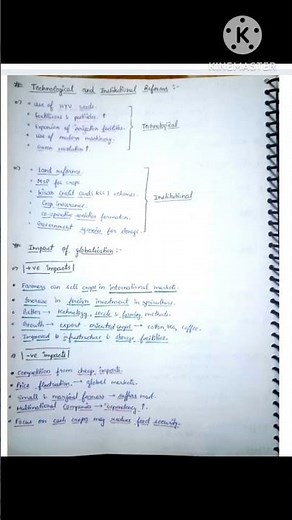 KINEMASTER
Technological and Institutional Reforms :-
Use of HYV seeds.
Fertilizers & pesticides ↑
Expansion of irrigation facilities.
Use of modern machinery.
Green revolution ↑
Technological
Land reforms.
MSP for crops
Kisan credit cards (KCC) schemes.
Crop insurance.
co-operative societies formation.
Government agencies for storage
Institutional
Impact of globalisation :-
+ve impacts
Farmers can sell crops in international markets.
Increase in foreign investment in agriculture.
Better → technology, seeds & farming methods.
Growth → export oriented crops → cotton, tea, coffee.
Improved infrastructure & storage facilities.
-ve impacts
Competition from cheap imports
Price fluctuation → global markets.
Small & marginal farmers → suffers
Multinational Companies → Dependency ↑.
Focus on cash crops may reduce food security.